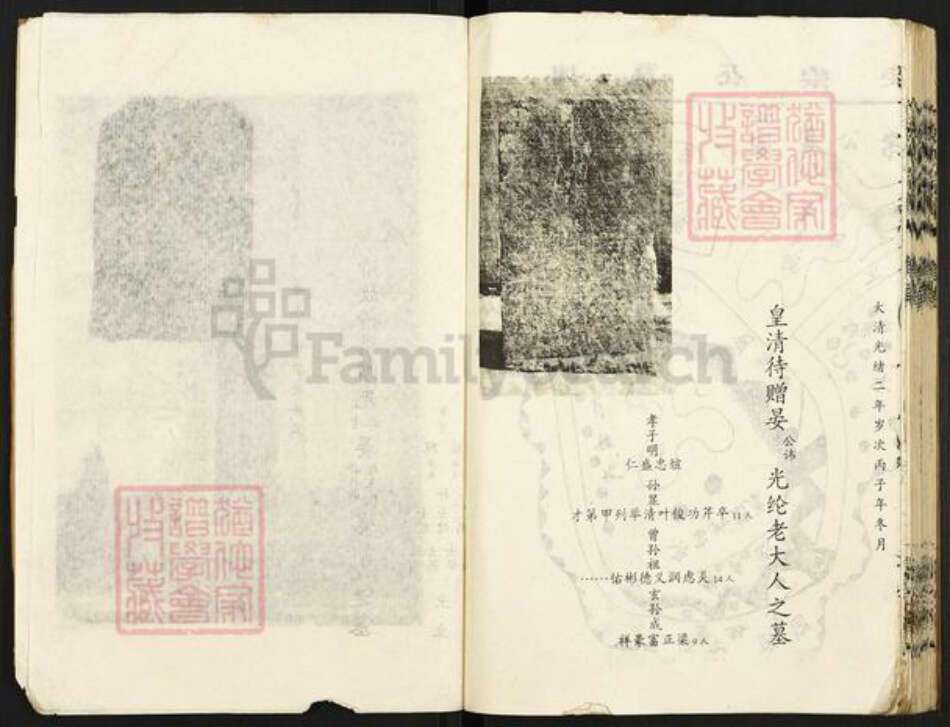 大清光绪二年岁次丙子年冬月
皇清待赠晏公讳光纶老大人之墓
孝子明
忠盛仁
孙星
卒芹功俊叶清举列甲第才11人
曾孙祖
虑润义德彬佑……14人
玄孙成
梁正富豪祥9人
譜學會
收藏
FamilySearch
譜學會
收藏